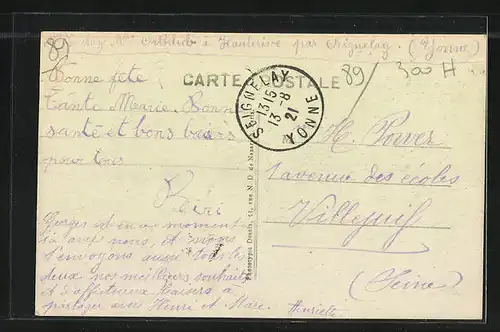 à Hauterive par Seignelay (Yonne)
89
89
300 H
CARTE POSTALE
SEIGNELAY
1315
13-8
21
YONNE
Bonne fête
Tante Marie. Bonne
santé et bons baisers
pour tous
Georges est en ce moment
avec nous, et
t'envoyons aussi tous les
deux nos meilleurs souhaits
et d'affectueux baisers à
partager avec Henri et Marc. Henriette
1 avenue des écoles
Villejuif
(Seine)
rue N. D. de Nazareth